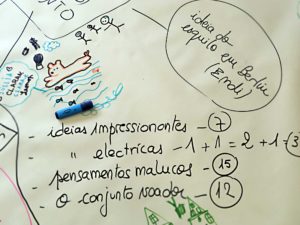 NTO
ideia do
esquilo em Berlim
(Endi)
- ideias impressionantes - 7
- " electricas - 1 + 1 = 2 + 1 = 3
- pensamentos malucos - 15
- o conjunto voador - 12